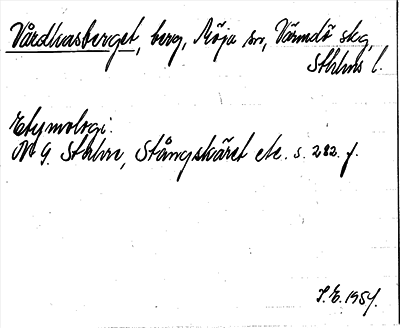 Vårdkasberget, berg, Möja sn, Värmdö skg,
Sthlms l.
Etymologi:
N G. Stahre, Stångskäret etc. s. 282. f.
S.E. 1954.